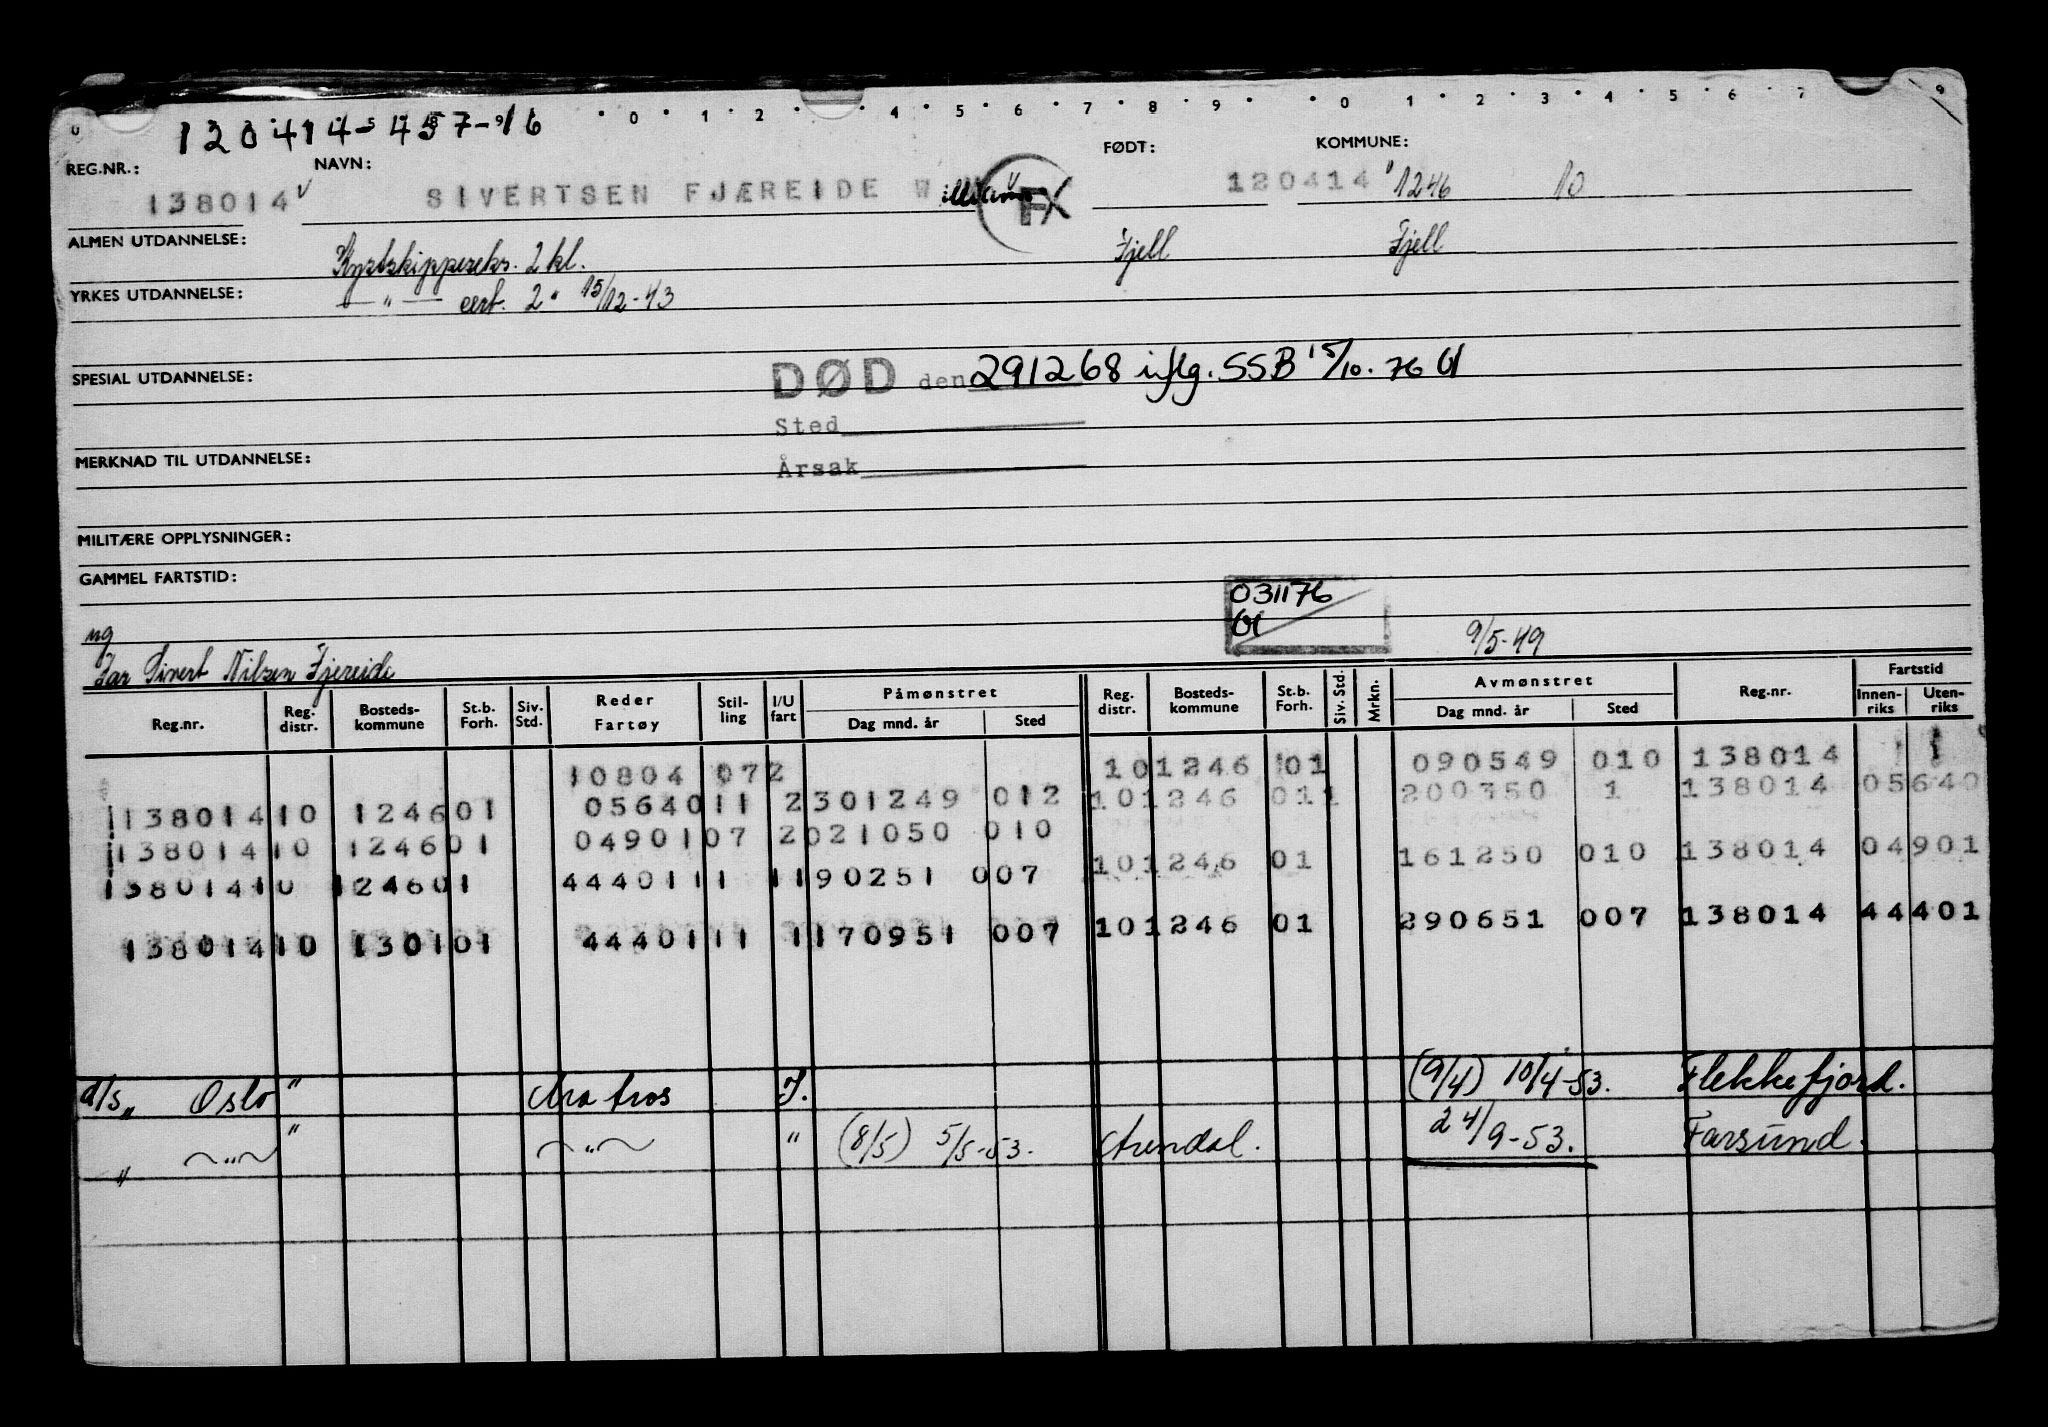 0 1 2 4 5 6 7 8 9 0 1 2 3 4 5 6 7 9
120414-457-16
REG.NR.: NAVN: FØDT: KOMMUNE:
138014 SIVERTSEN FJÆREIDE W FX 120414 1246 10
ALMEN UTDANNELSE: Kystskippereks. 2 kl. Fjell Fjell
YRKES UTDANNELSE: — " — cert. 2 " 15/12-43
SPESIAL UTDANNELSE: DØD den 291268 iflg. SSB 15/10.76
Sted
MERKNAD TIL UTDANNELSE: Årsak
MILITÆRE OPPLYSNINGER:
GAMMEL FARTSTID:
031176
ug 9/5-49
Far Sivert Nilsen Fjereide
Reg.nr. Reg. distr. Bosteds- kommune St.b. Forh. Siv. Std. Reder Fartøy Stil- ling I/U fart Påmønstret Dag mnd. år Sted Reg. distr. Bosteds- kommune St.b. Forh. Siv. Std. Mrkn. Avmønstret Dag mnd. år Sted Reg.nr. Fartstid Innen- riks Uten- riks
10804 072 101246 01 090549 010 138014
138014 10 1246 01 05640 11 2 301249 012 101246 011 200350 1 138014 05640
138014 10 1246 01 04901 07 2 021050 010 101246 01 161250 010 138014 04901
138014 10 1246 01 44401 11 1 190251 007
101246 01 290651 007 138014 44401
138014 10 1301 01 44401 11 1 170951 007
d/s " Oslo " I. (9/4) 10/4-53. Flekkefjord.
" — " — " — " — " (8/5) 5/5-53. Arendal. 24/9-53. Farsund.